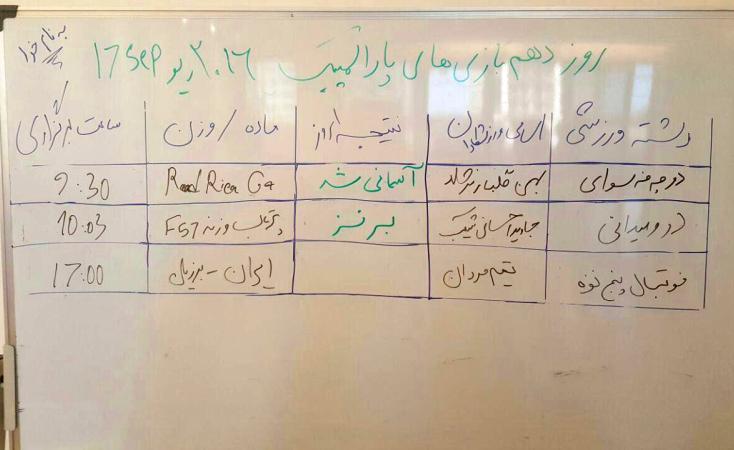 به نام خدا
روز دهم بازی های پارالمپیک ۲۰۱۶ ریو 17 Sep
رشته ورزشی اسامی ورزشکاران نتیجه امروز ماده / وزن ساعت برگزاری
دوچرخه سواری بهمن گلبارنژاد آسمانی شد Road Race C4 9:30
دو و میدانی جاوید احسانی شکیب برنز پرتاب وزنه F57 10:03
فوتبال پنج نفره تیم مردان ایران - برزیل 17:00